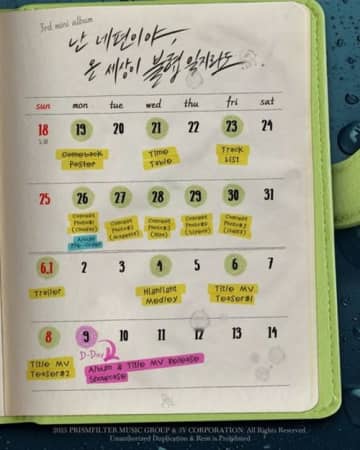 3rd mini album
난 네편이야,
온 세상이 불협일지라도
sun mon tue wed thu fri sat
18 19 20 21 22 23 24
Comeback
Poster
Time
Table
Track
List
25 26 27 28 29 30 31
Concept
Photo#1
Album
Pre-Order
Concept
Photo#2
Concept
Photo#3
Concept
Photo#4
Concept
Photo#5
6.1 2 3 4 5 6 7
Trailer
Highlight
Medley
Title MV
Teaser#1
8 9 10 11 12 13 14
D-Day
Title MV
Teaser#2
Album & Title MV Release
Showcase
2025 PRISMFILTER MUSIC GROUP & 3Y CORPORATION. All Rights Reserved.
Unauthorized Duplication & Rent is Prohibited